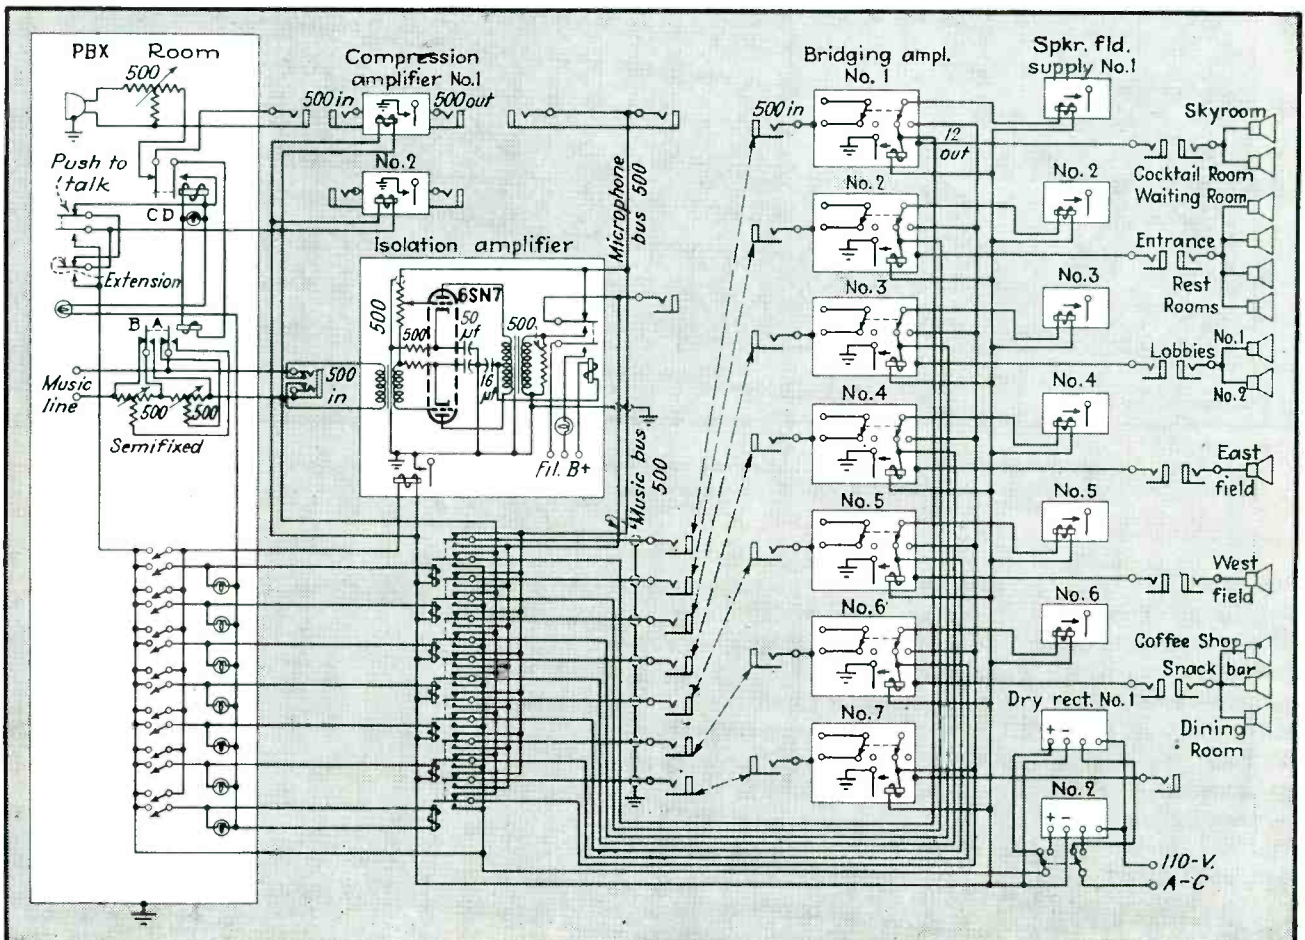 PBX Room
500
Push to
talk
C D
Extension
B A
Music
line
500
500
Semifixed
Compression
amplifier No.1
500 in
500 out
No.2
Isolation amplifier
500
6SN7
50
µf
500
500
16
µf
500
in
Fil. B+
Microphone
bus 500
Music bus
500
Bridging ampl.
No. 1
500 in
12
out
No.2
No.3
No.4
No.5
No.6
No.7
Spkr. fld.
supply No.1
No.2
No.3
No.4
No.5
No.6
Dry rect. No.1
+ -
No.2
+ -
110-V.
A-C
Skyroom
Cocktail Room
Waiting Room
Entrance
Rest
Rooms
No.1
Lobbies
No.2
East
field
West
field
Coffee Shop
Snack bar
Dining
Room